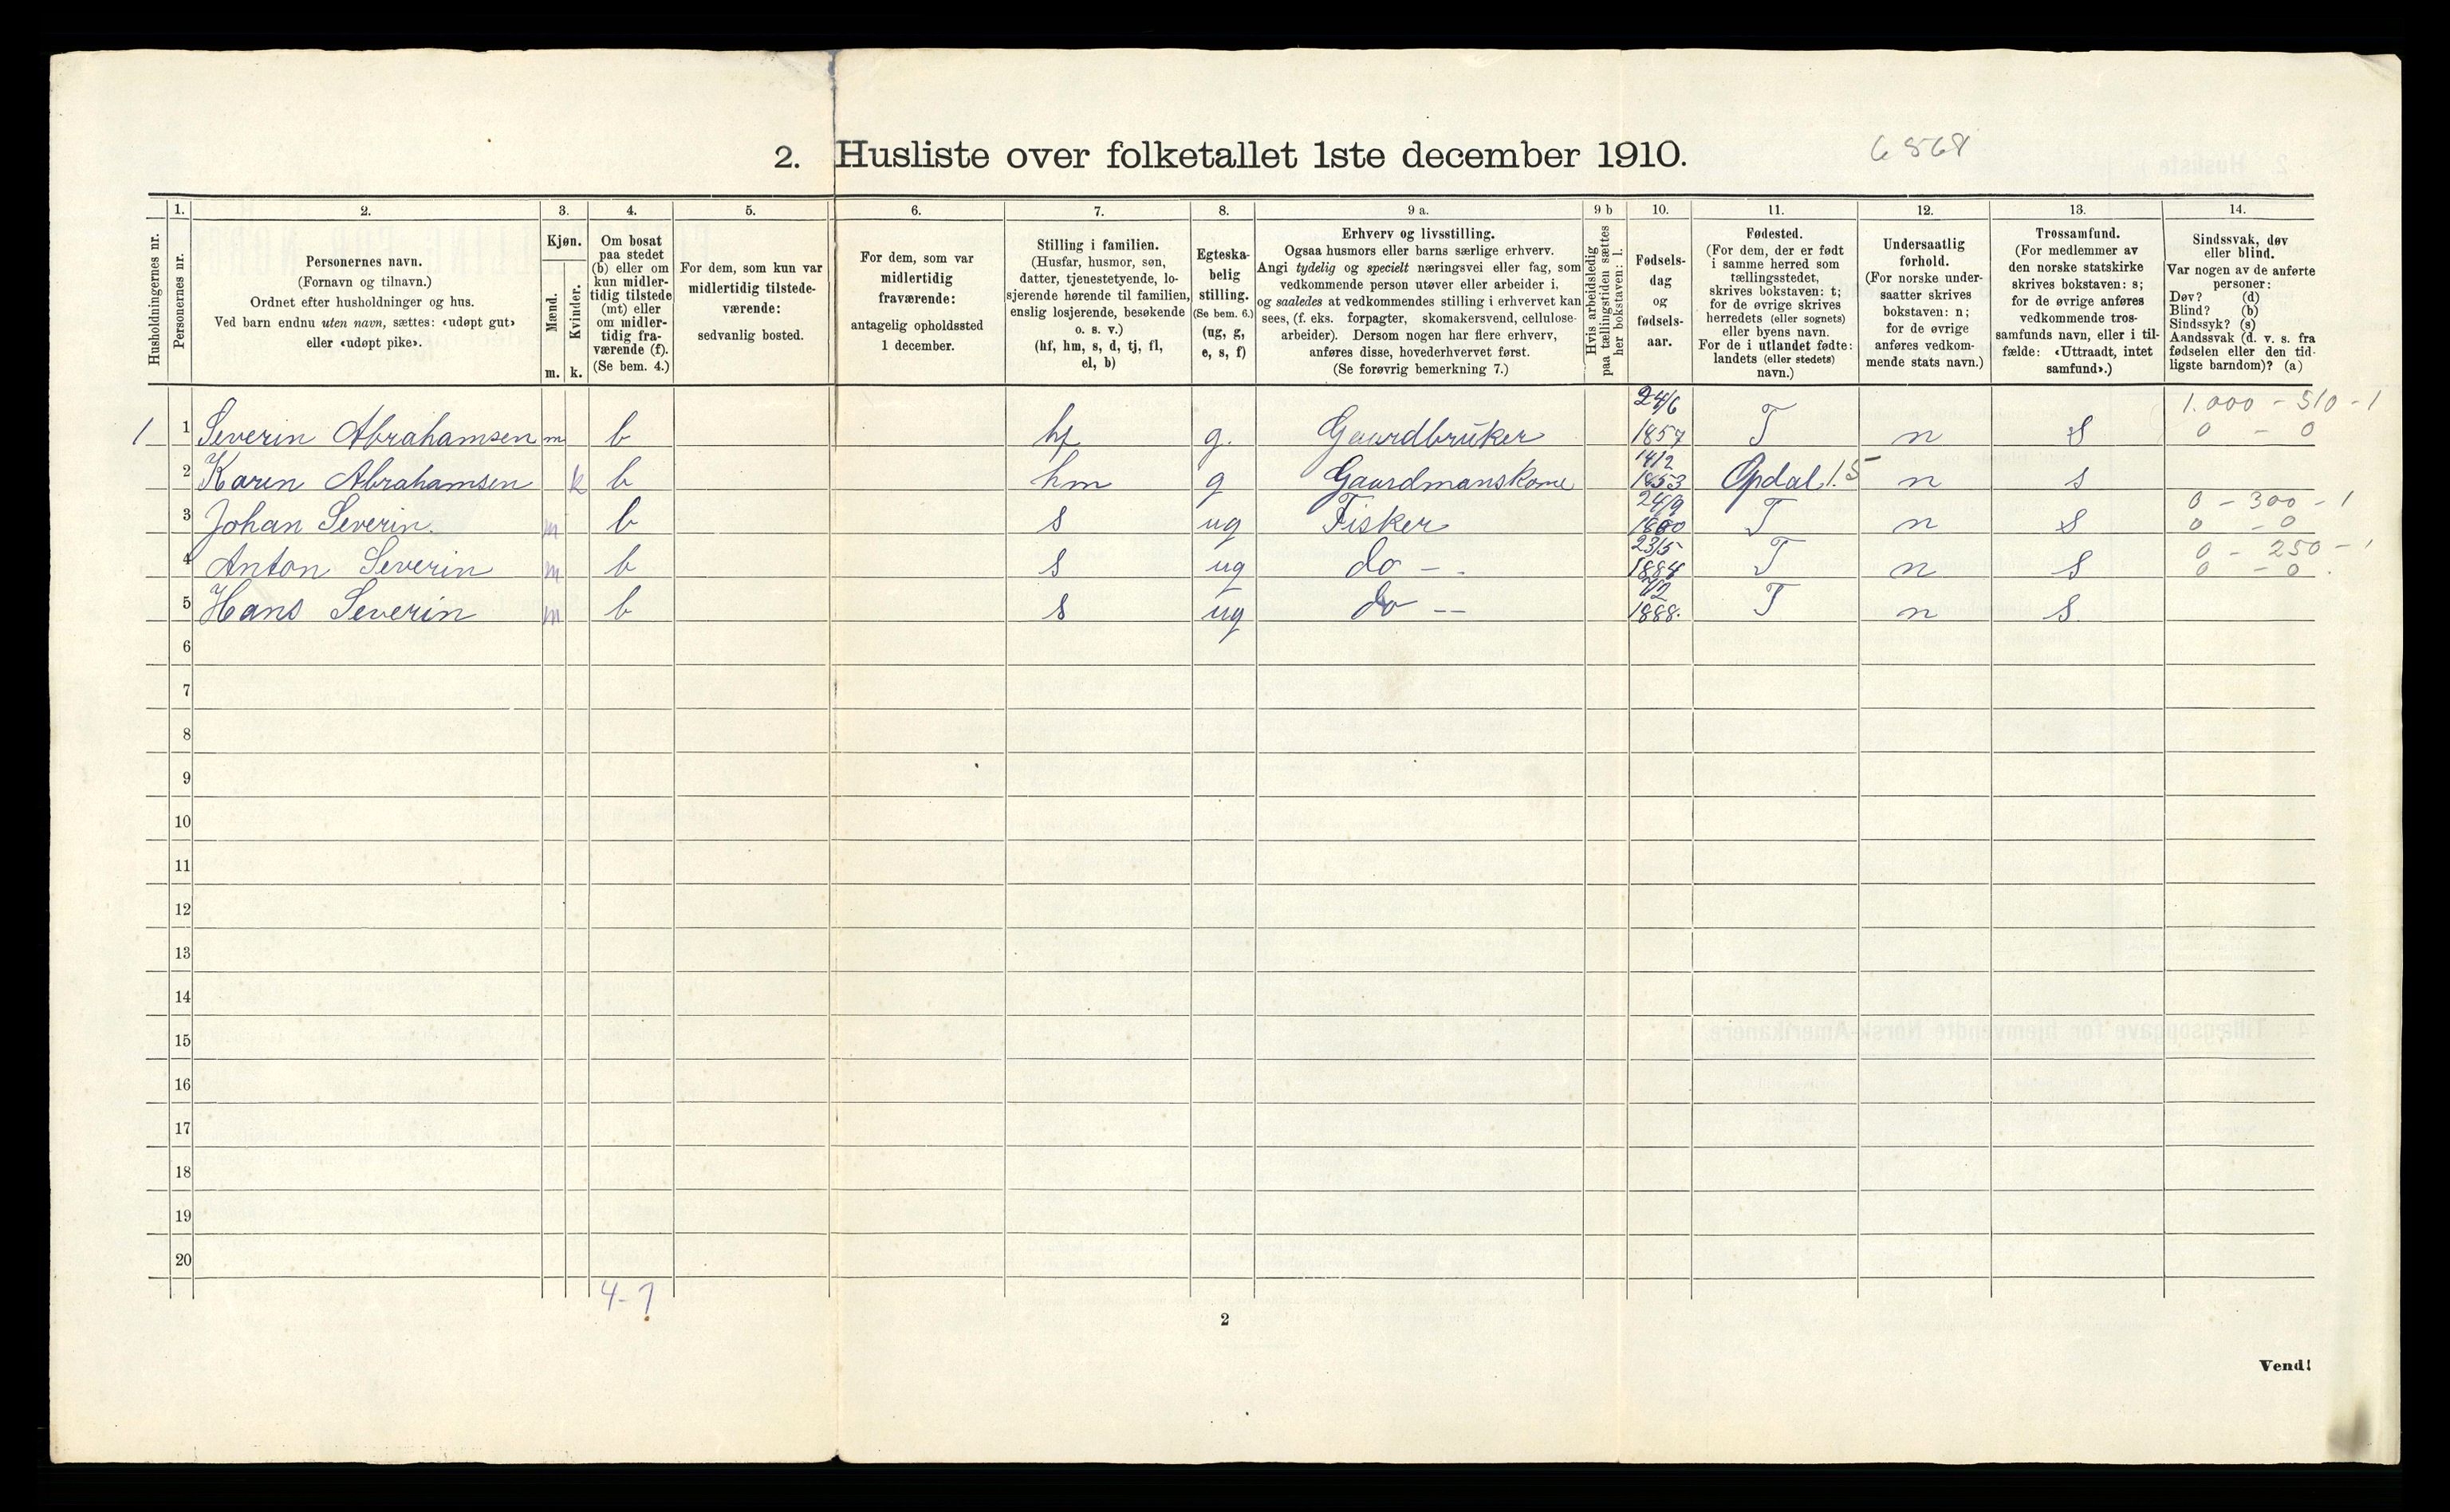 2. Husliste over folketallet 1ste december 1910.
6568
Husholdningernes nr.
1.
Personernes nr.
2.
Personernes navn.
(Fornavn og tilnavn.)
Ordnet efter husholdninger og hus.
Ved barn endnu uten navn, sættes: «udøpt gut»
eller «udøpt pike».
3.
Kjøn.
Mænd.
Kvinder.
m. k.
4.
Om bosat
paa stedet
(b) eller om
kun midler-
tidig tilstede
(mt) eller
om midler-
tidig fra-
værende (f).
(Se bem. 4.)
5.
For dem, som kun var
midlertidig tilstede-
værende:
sedvanlig bosted.
6.
For dem, som var
midlertidig
fraværende:
antagelig opholdssted
1 december.
7.
Stilling i familien.
(Husfar, husmor, søn,
datter, tjenestetyende, lo-
sjerende hørende til familien,
enslig losjerende, besøkende
o. s. v.)
(hf, hm, s, d, tj, fl,
el, b)
8.
Egteska-
belig
stilling.
(Se bem. 6.)
(ug, g,
e, s, f)
9 a.
Erhverv og livsstilling.
Ogsaa husmors eller barns særlige erhverv.
Angi tydelig og specielt næringsvei eller fag, som
vedkommende person utøver eller arbeider i,
og saaledes at vedkommendes stilling i erhvervet kan
sees, (f. eks. forpagter, skomakersvend, cellulose-
arbeider). Dersom nogen har flere erhverv,
anføres disse, hovederhvervet først.
(Se forøvrig bemerkning 7.)
9 b
Hvis arbeidsledig
paa tællingstiden sættes
her bokstaven: l.
10.
Fødsels-
dag
og
fødsels-
aar.
11.
Fødested.
(For dem, der er født
i samme herred som
tællingsstedet,
skrives bokstaven: t;
for de øvrige skrives
herredets (eller sognets)
eller byens navn.
For de i utlandet fødte:
landets (eller stedets)
navn.)
12.
Undersaatlig
forhold.
(For norske under-
saatter skrives
bokstaven: n;
for de øvrige
anføres vedkom-
mende stats navn.)
13.
Trossamfund.
(For medlemmer av
den norske statskirke
skrives bokstaven: s;
for de øvrige anføres
vedkommende tros-
samfunds navn, eller i til-
fælde: «Uttraadt, intet
samfund».)
14.
Sindssvak, døv
eller blind.
Var nogen av de anførte
personer:
Døv? (d)
Blind? (b)
Sindssyk? (s)
Aandssvak (d. v. s. fra
fødselen eller den tid-
ligste barndom)? (a)
1.000 - 510 - 1
0 - 0
1 1 Severin Abrahamsen m b hf g. Gaardbruker 24/6 1857 T n S
2 Karen Abrahamsen k b hm g Gaardmanskone 14/2 1853 Opdal 15 n s
0 - 300 - 1
0 - 0
3 Johan Severin. m b s ug Fisker 24/9 T n S
0 - 250 - 1
0 - 0
4 Anton Severin m b s ug do - . 23/5 1884 T n S
5 Hans Severin m b s ug do -- 1888. T n S.
6
7
8
9
10
11
12
13
14
15
16
17
18
19
20
4-1
2
Vend!